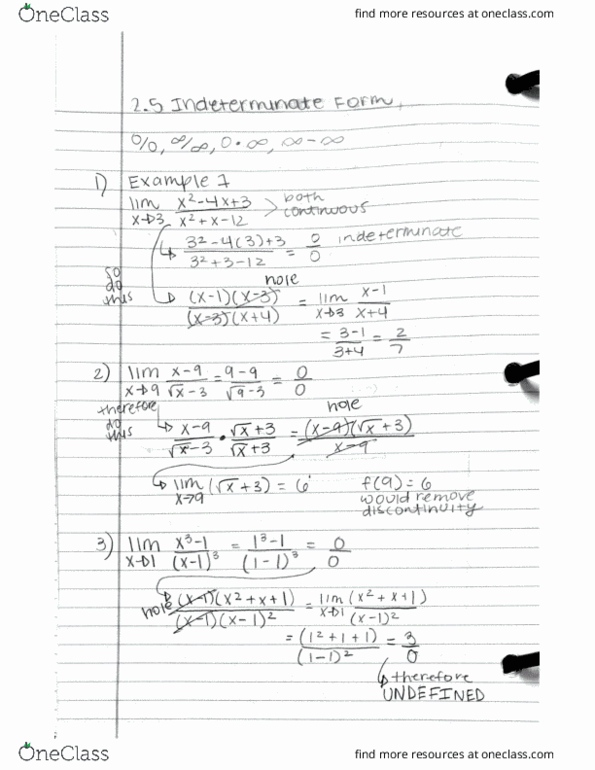 OneClass
find more resources at oneclass.com
2.5 Indeterminate Form,
0/0, ∞/∞, 0·∞, ∞-∞
1) Example 1
lim x→3 (x²-4x+3)/(x²+x-12) > both continuous
↳ (3²-4(3)+3)/(3²+3-12) = 0/0 indeterminate
hole
so do this ↳ (x-1)(x-3)/(x-3)(x+4) = lim x→3 (x-1)/(x+4)
= (3-1)/(3+4) = 2/7
2) lim x→9 (x-9)/(√x-3) = (9-9)/(√9-3) = 0/0
hole
therefore do this ↳ (x-9)/(√x-3) · (√x+3)/(√x+3) = (x-9)(√x+3)/(x-9)
↳ lim x→9 (√x+3) = 6 f(9)=6 would remove discontinuity
3) lim x→1 (x³-1)/(x-1)³ = (1³-1)/(1-1)³ = 0/0
hole (x-1)(x²+x+1)/(x-1)(x-1)² = lim x→1 (x²+x+1)/(x-1)²
= (1²+1+1)/(1-1)² = 3/0
↳ therefore
UNDEFINED
OneClass
find more resources at oneclass.com